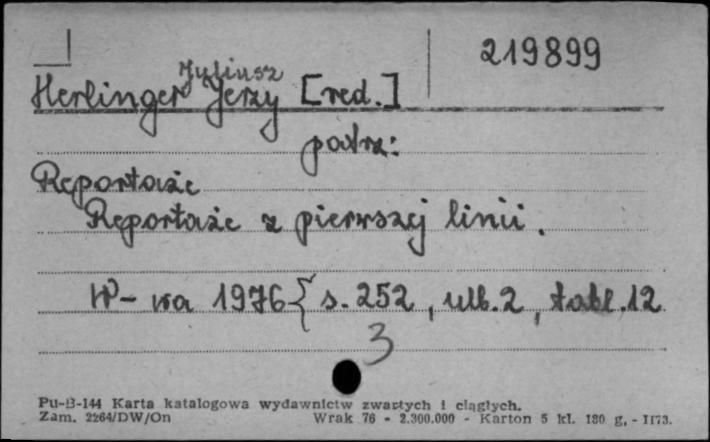 219899
Juliusz
Herlinger Jerzy [red.]
patrz:
Reportaże
Reportaże z pierwszej linii.
W-wa 1976 { s. 252, ulb. 2, tabl. 12
3
Pu-B-144 Karta katalogowa wydawnictw zwartych i ciągłych.
Zam. 2264/DW/On Wrak 76 - 2.300.000 - Karton 5 kl. 180 g, - II73.